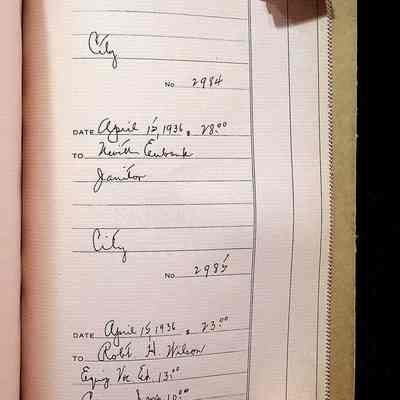 City
No 2984
DATE April 15, 1936 $ 28.00
TO Newith Eubank
Janitor
City
No 2985
DATE April 15, 1936 $ 23.00
TO Robt H. Wilson
Equip Voc Ed. 13.00
10.00